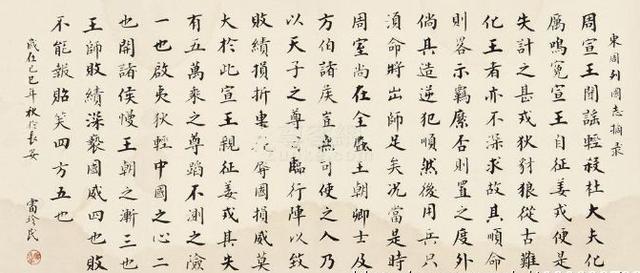 東周列國志摘录
周宣王聞謠輕殺杜大夫化
厲鳴冤宣王自征姜戎便是
失計之甚戎狄豺狼從古難
化王者亦不深求故其順命
則畧示羈縻否則置之度外
倘其造逆犯順然後用兵只
須命將出師足矣况當是時
周室尚在全盛王朝卿士及
方伯諸侯豈無可使之人乃
以天子之尊臨行陣以致
敗績損折車辱國損威莫
大於此宣王親征姜戎其失
有五萬乘之尊蹈不測之險
一也啟夷狄輕中國之心二
也開諸侯慢王朝之漸三也
王師敗績深褻國威四也敗
不能報貽笑四方五也
歲在己巳年秋於長安
雷珍民